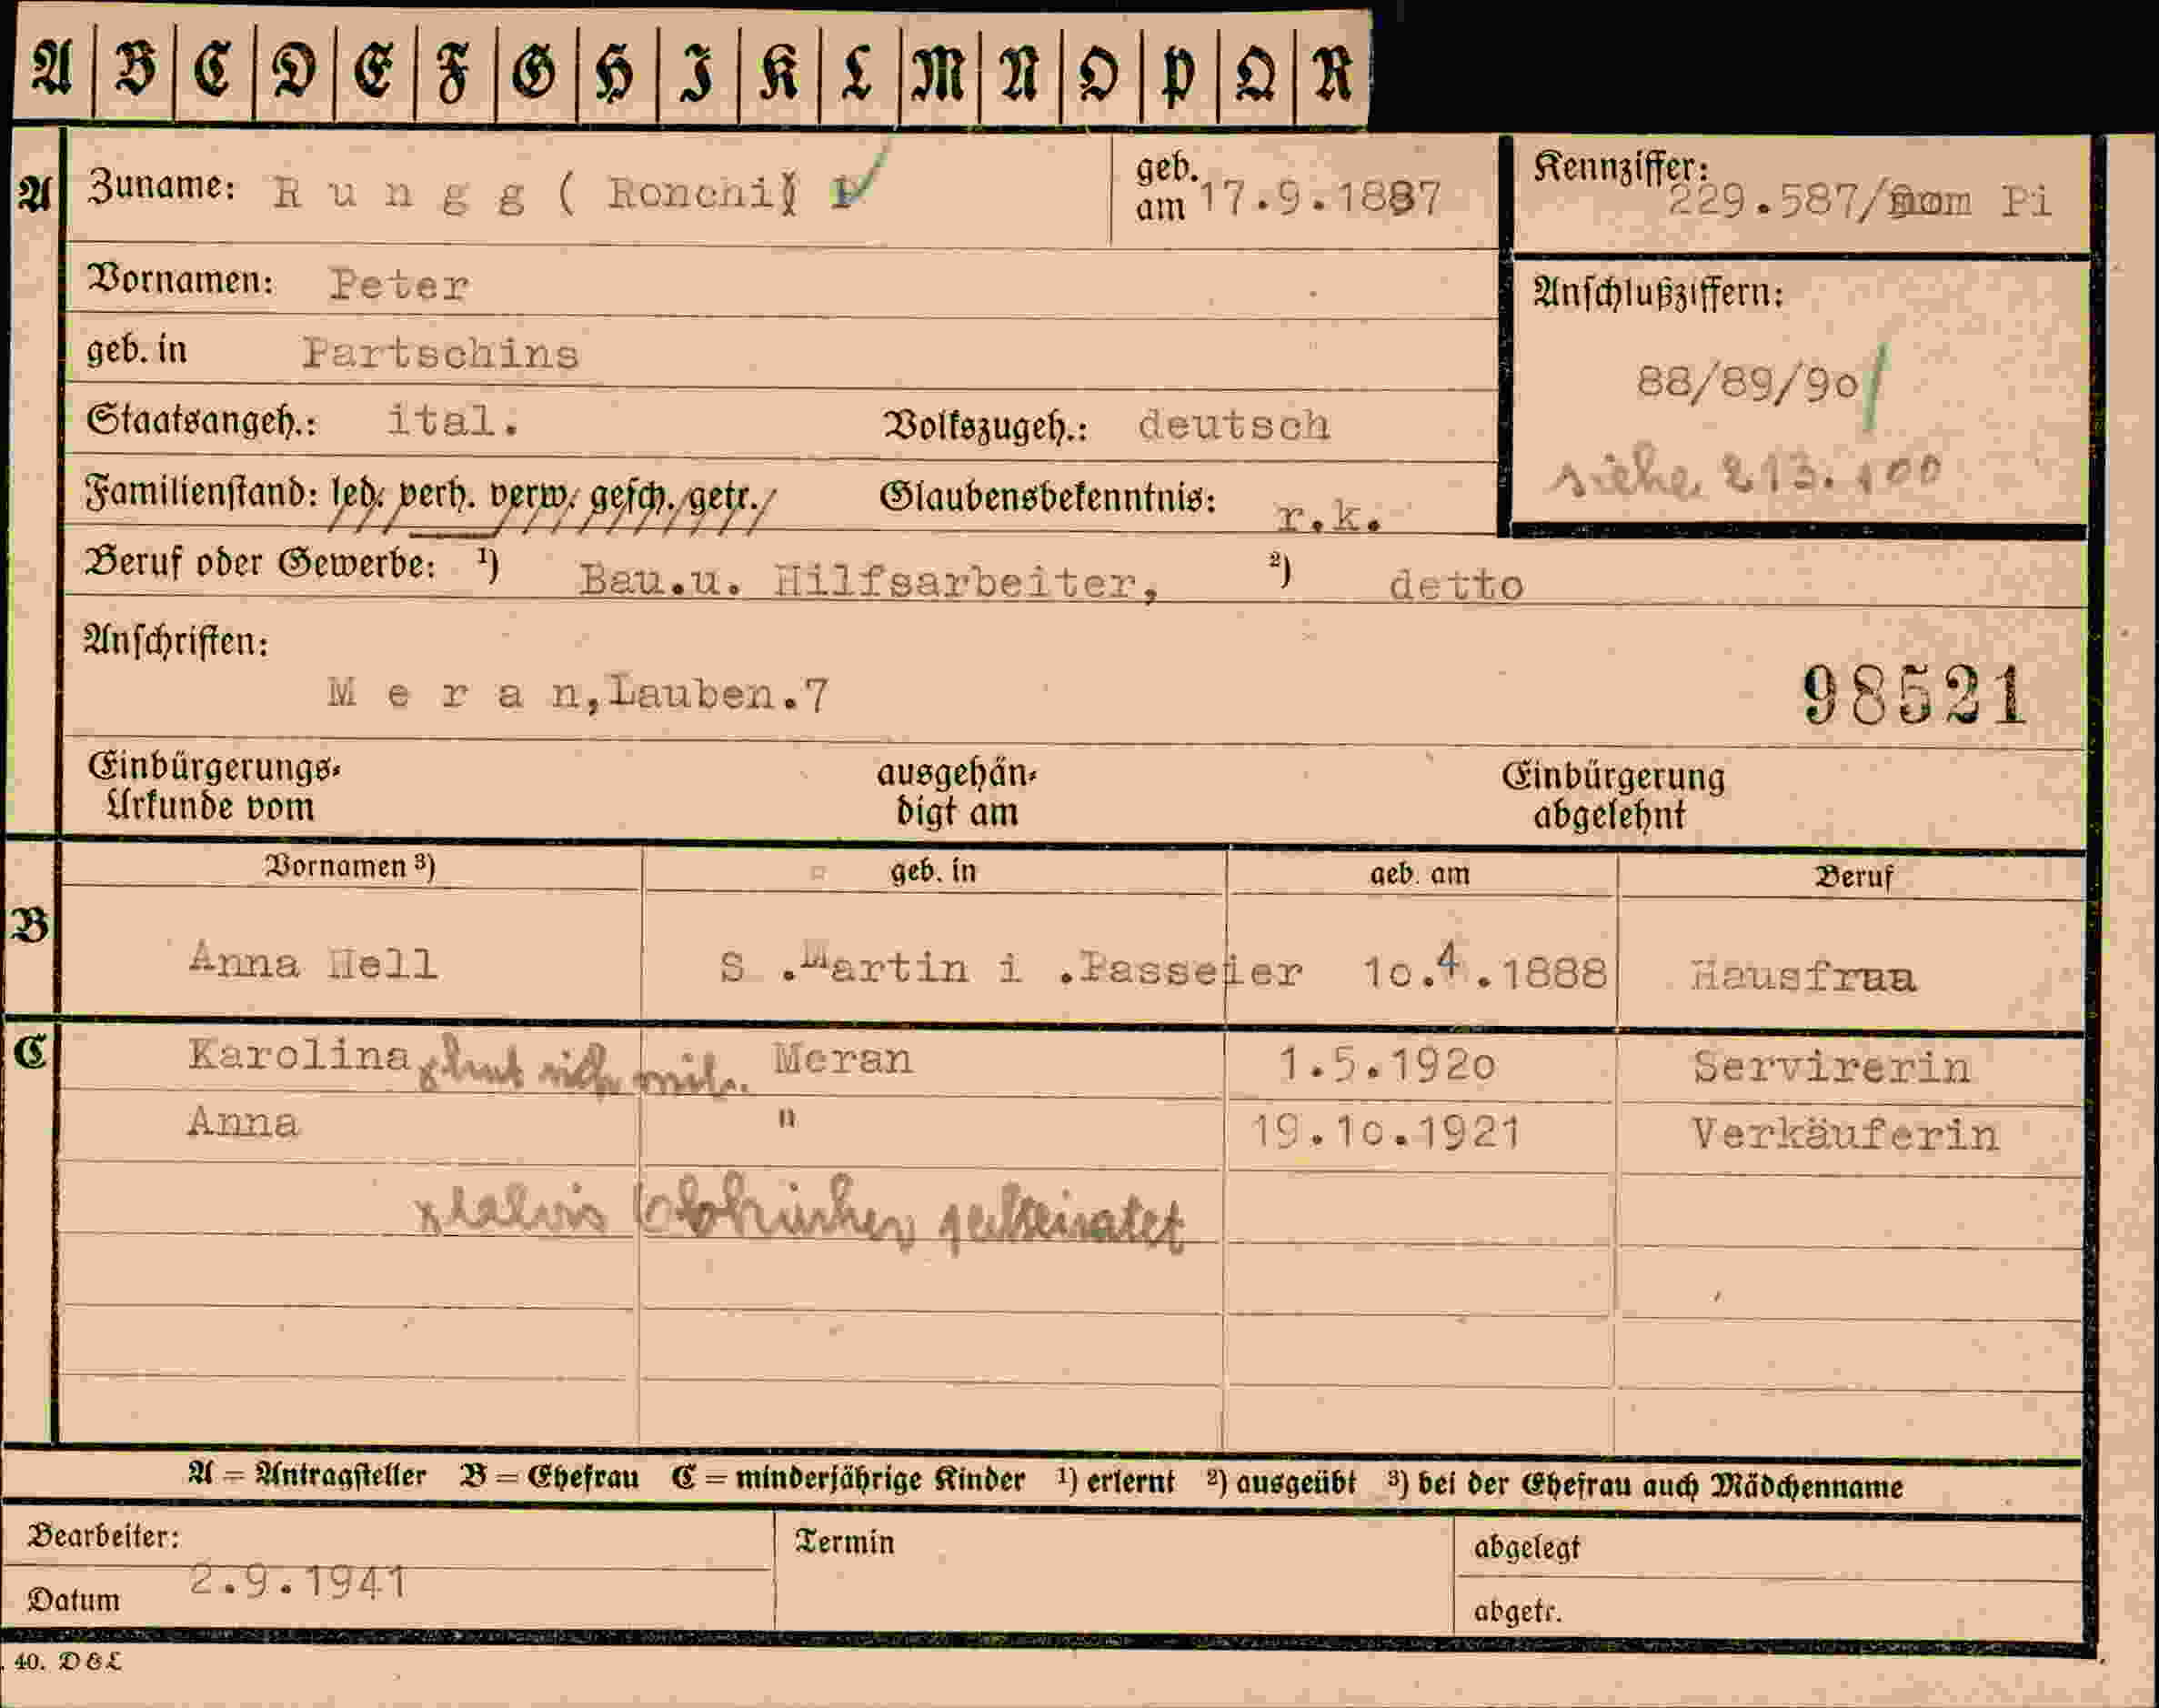 A B C D E F G H I K L M N O P Q R
A Zuname: Rungg (Ronchi) geb. am 17.9.1887 Kennziffer: 229.587/ Pi
Vornamen: Peter Anschlußziffern:
geb. in Partschins 88/89/90/
Staatsangeh.: ital. Volkszugeh.: deutsch
siehe 213.100
Familienstand: led. verh. verw. gesch. getr. Glaubensbekenntnis: r.k.
Beruf oder Gewerbe: ¹) Bau.u. Hilfsarbeiter, ²) detto
Anschriften:
Meran,Lauben.7 98521
Einbürgerungs- ausgehän- Einbürgerung
Urkunde vom digt am abgelehnt
Vornamen ³) geb. in geb. am Beruf
B Anna Hell S .Martin i .Passeier 10.4.1888 Hausfrau
C Karolina Meran 1.5.1920 Servirerin
Anna " 19.10.1921 Verkäuferin
A = Antragsteller B = Ehefrau C = minderjährige Kinder ¹) erlernt ²) ausgeübt ³) bei der Ehefrau auch Mädchenname
Bearbeiter: Termin abgelegt
Datum 2.9.1941 abgetr.
40. D&L